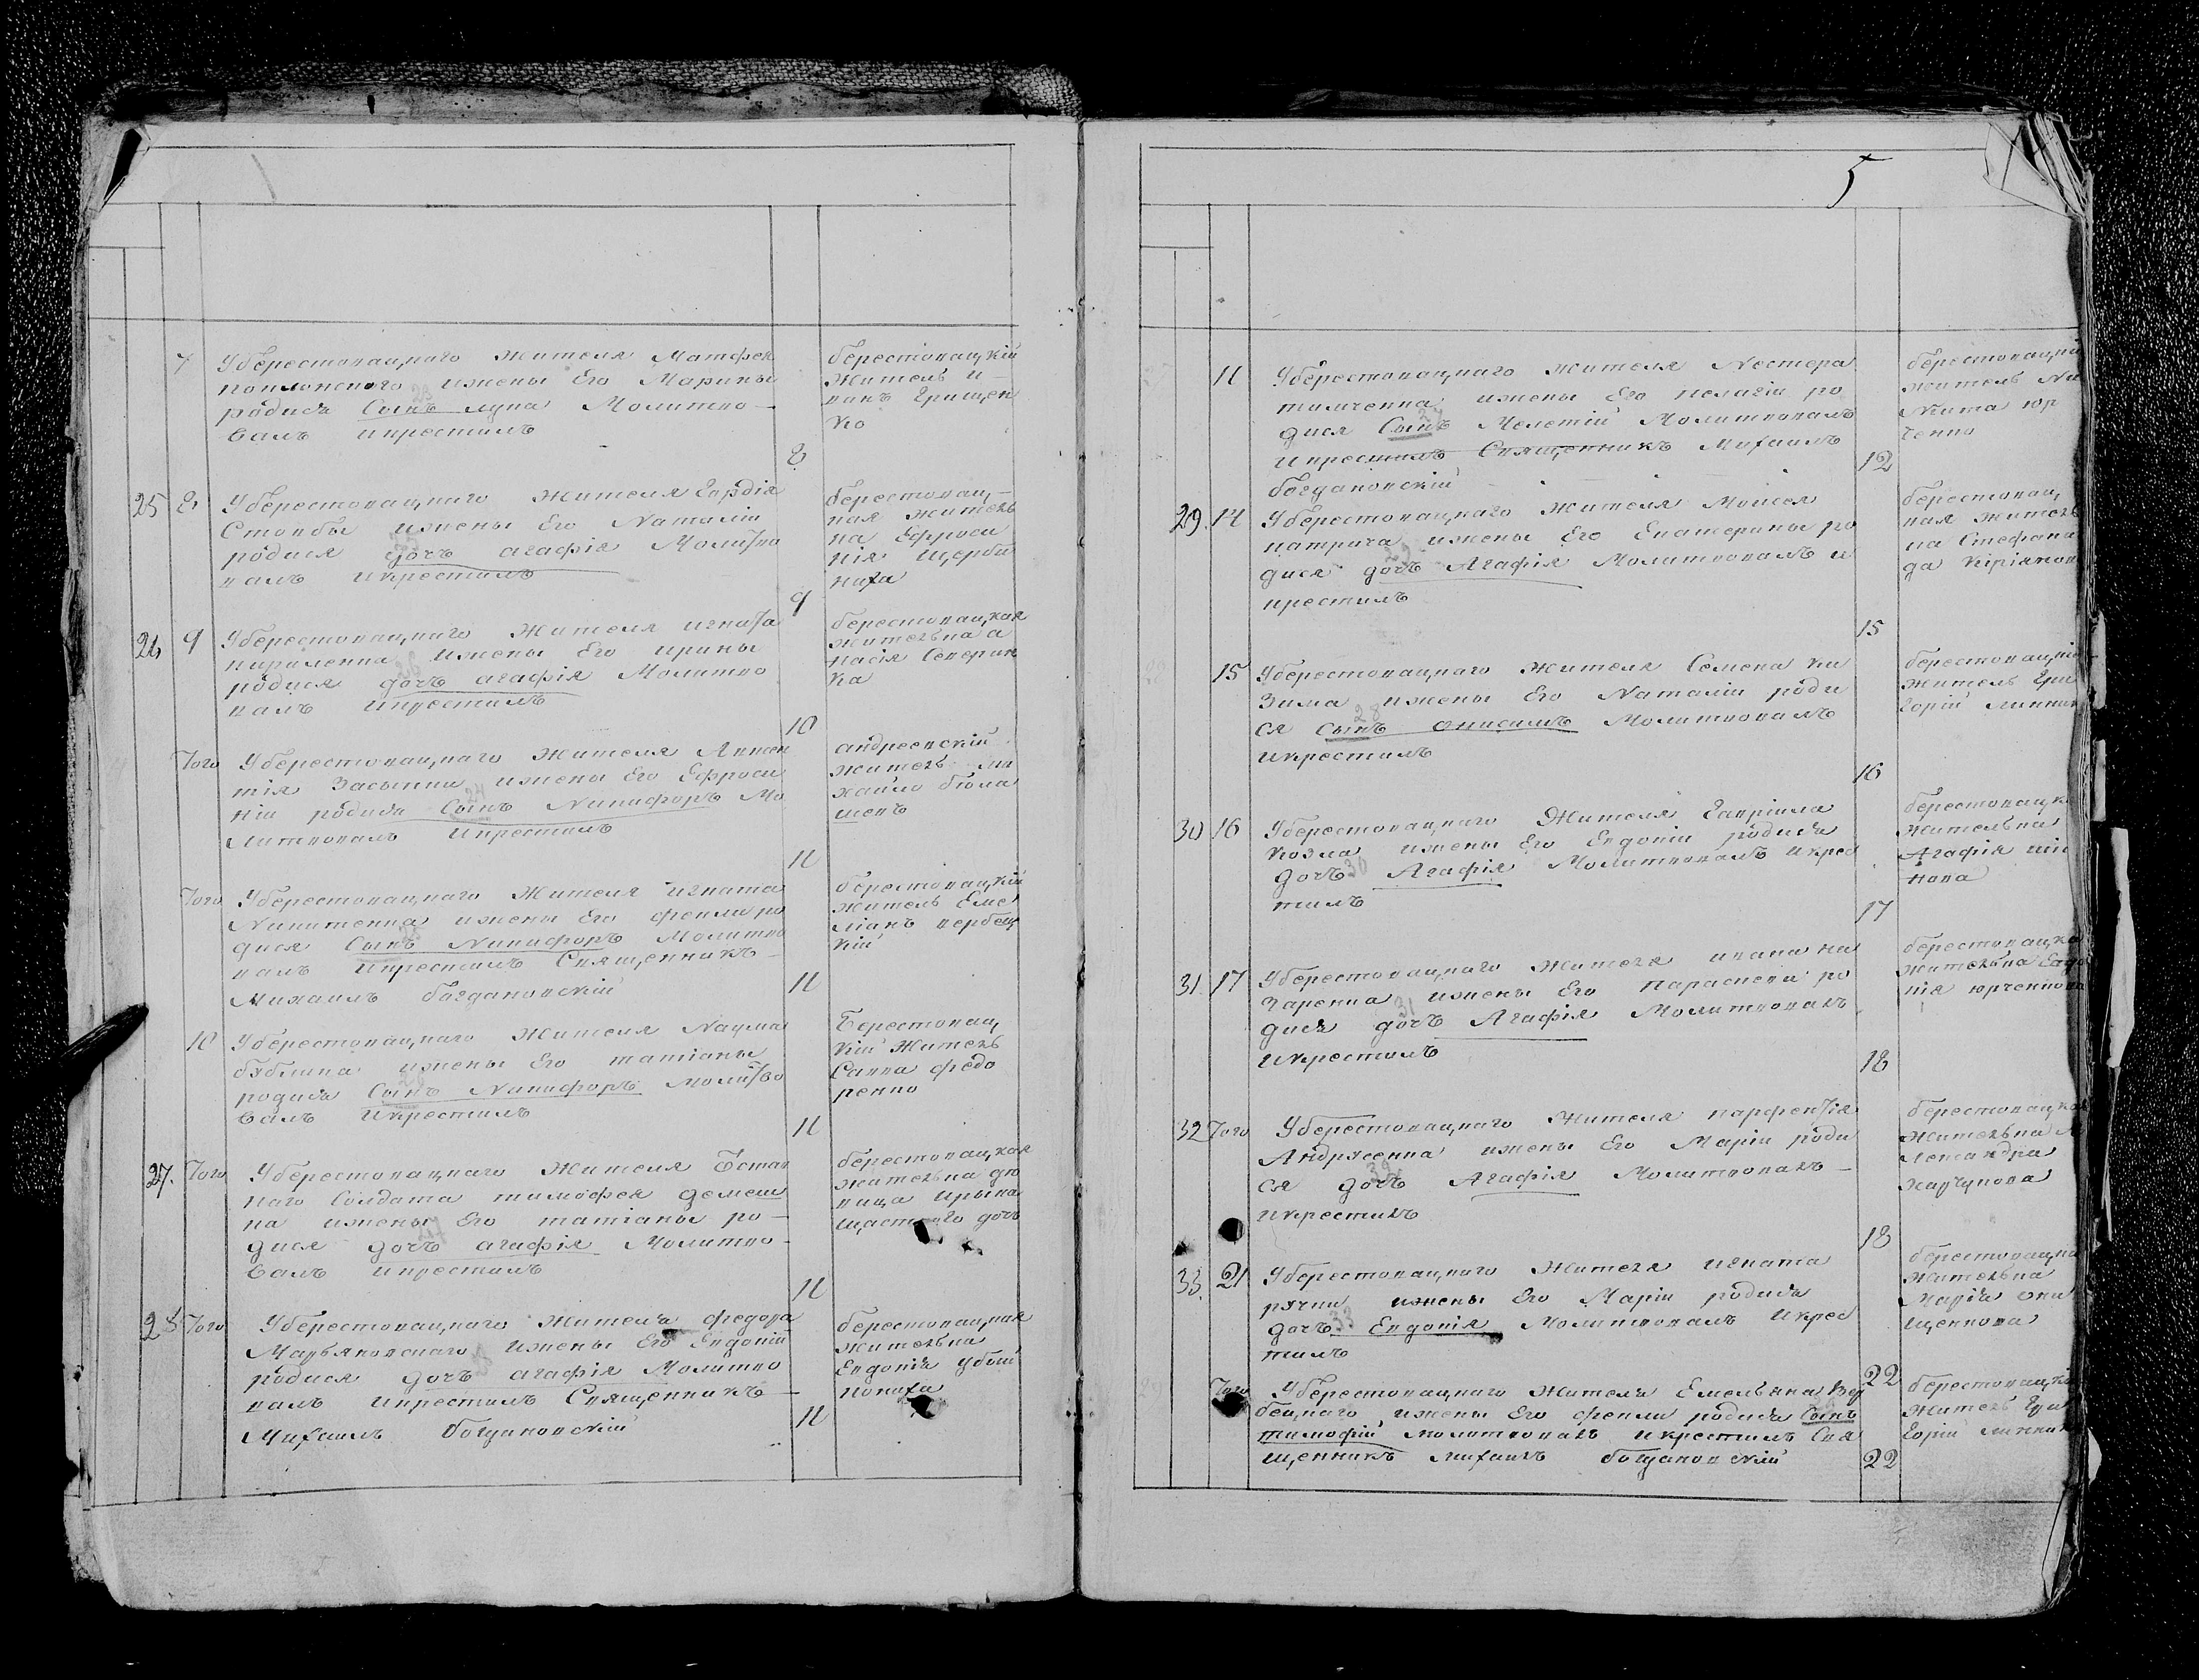 7 Уберестовацкаго жителя Матфея
поплонского ижены Его Марины
родися Сынъ лука Молитво-
валъ икрестилъ
8
берестовацкій
житель и-
ванъ Грищен
ко
25 8 Уберестовацкаго жителя Гордія
Столбы ижены Его Наталіи
родися дочь агафія Молитво
валъ икрестилъ
9
берестовац-
кая житель
ка Ефроси
нія щерби
ниха
26 9 Уберестовацкаго жителя игната
кириленка ижены Его ирины
родися дочь агафія Молитво
валъ икрестилъ
10
берестовацкая
жителька а
насія Северин
ка
Того Уберестовацкаго жителя Авксен
тія Засыпки ижены Его Ефроси
ніи родися Сынъ Никифоръ Мо
литвовалъ икрестилъ
11
андреевскій
житель ми
хайло
Того Уберестовацкаго жителя игната
Никитенка ижены Его феклы ро
дися Сынъ Никифоръ Молитво
валъ икрестилъ Священникъ
Михаилъ богдановскій
11
берестовацкій
житель Еме
ліанъ вербец
кій
10 Уберестовацкаго жителя Наума
бублика ижены Его татіаны
родися Сынъ Никифоръ молитво
валъ икрестилъ
11
Берестовац
кій житель
Савва федо
ренко
27. Того Уберестовацкаго жителя Отстав
наго Солдата тимофея демеш
ка ижены Его татіаны ро-
дися дочь агафія Молитво-
валъ икрестилъ
11
берестовацкая
жителька дѣ
вица ирына
щастного дочь
28 Того Уберестовацкаго жителя федора
Марьяновскаго ижены Его Евдокіи
родися дочь агафія Молитво
валъ икрестилъ Священникъ
Михаилъ богдановскій
11
берестовацкая
жителька
Евдокія убой
кониха
5
11 Уберестовацкаго жителя Нестера
тимченка ижены Его пелагіи ро
дися Сынъ Мелетій Молитвовалъ
икрестилъ Священникъ Михаилъ
богдановскій
12
берестовацкій
житель Ни
кита юр
ченко
29. 14 Уберестовацкаго жителя Моисея
патрича ижены Его Екатерины ро
дися дочь Агафія Молитвовалъ и
крестилъ
15
берестовац
кая житель
ка Стефани
да Кіріяков
15 Уберестовацкаго жителя Семена ки
зима ижены Его Наталіи роди
ся Сынъ онисимъ Молитвовалъ
икрестилъ
16
берестовацкій
житель Гри
горій линник
30 16 Уберестовацкаго жителя Гавріила
козла ижены Его Евдокіи родися
дочь Агафія Молитвовалъ икрес
тилъ
17
берестовацк
жителька
Агафія
нова
31. 17 Уберестовацкаго жителя ивана на
заренка ижены Его параскеви ро
дися дочь Агафія Молитвовалъ
икрестилъ
18
берестовацка
жителька Евдо
кія юрченкова
32 Того Уберестовацкаго жителя парфентія
Андрусенка ижены Его Маріи роди
ся дочь Агафія Молитвовалъ
икрестилъ
18
берестовацкая
жителька А
лександра
харчукова
33. 21 Уберестовацкаго жителя игната
ручки ижены Его Маріи родися
дочь Евдокія Молитвовалъ икрес
тилъ
22
берестовацка
жителька
Марія они
щенкова
Того Уберестовацкаго жителя Емельяна Вер
бецкаго ижены Его феклы родися Сынъ
тимофій молитвовалъ икрестилъ Свя
щенникъ михаилъ богдановскій
22
берестовацкій
житель Гри
горій линник